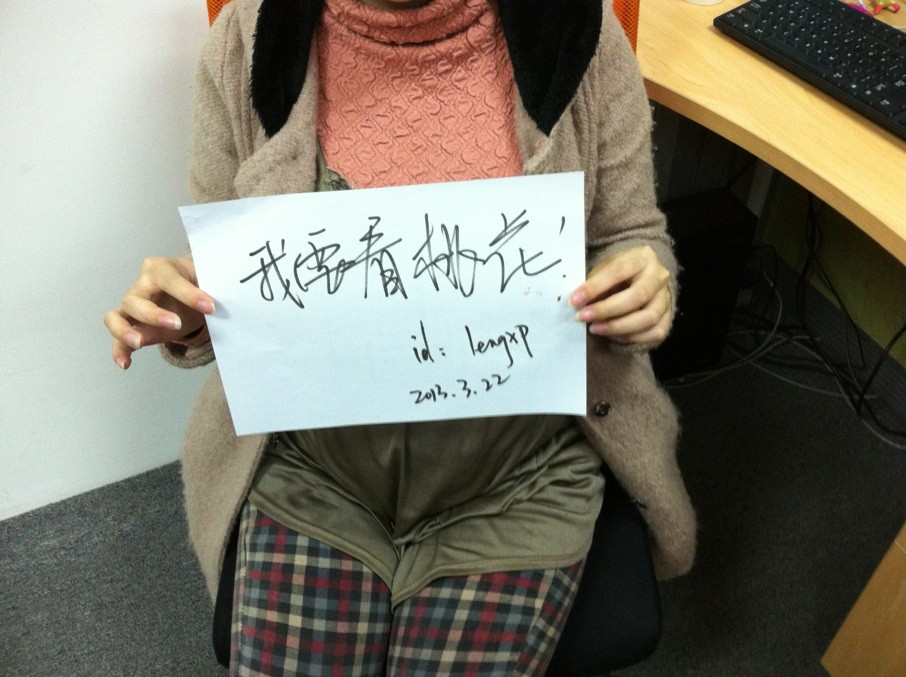 我要看桃花!
id: lengxp
2013.3.22